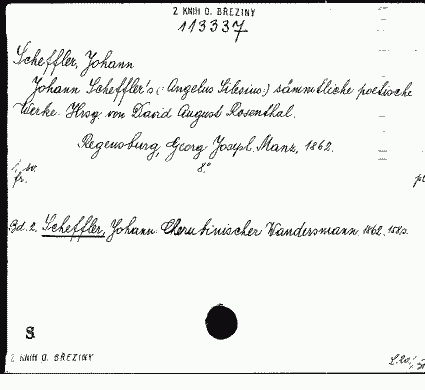 Z KNIH O. BŘEZINY
113337
Scheffler, Johann
Johann Scheffler's (: Angelus Silesius:) sämmtliche poetische
Werke. Hrsg. von David August Rosenthal.
Regensburg, Georg Joseph Manz, 1862.
8°
fr.
Bd. 2. Scheffler, Johann: Cherubinischer Wandersmann. 1862. 158 s.
S
Z KNIH O. BŘEZINY